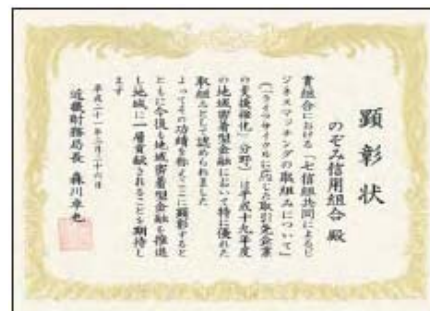 顕彰状
のぞみ信用組合 殿
貴組合における「七信組共同によるビ
ジネスマッチングの取組みについて」
(「ライフサイクルに応じた取引先企業
の支援強化」分野)は平成十九年度
の地域密着型金融において特に優れた
取組みとして認められました
よってその功績を称えここに顕彰すると
ともに今後も地域密着型金融を推進
し地域に一層貢献されることを期待し
ます
平成二十一年三月二十六日
近畿財務局長 森川卓也